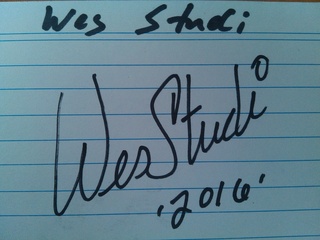 Wes Studi
Wes Studi
'2016'